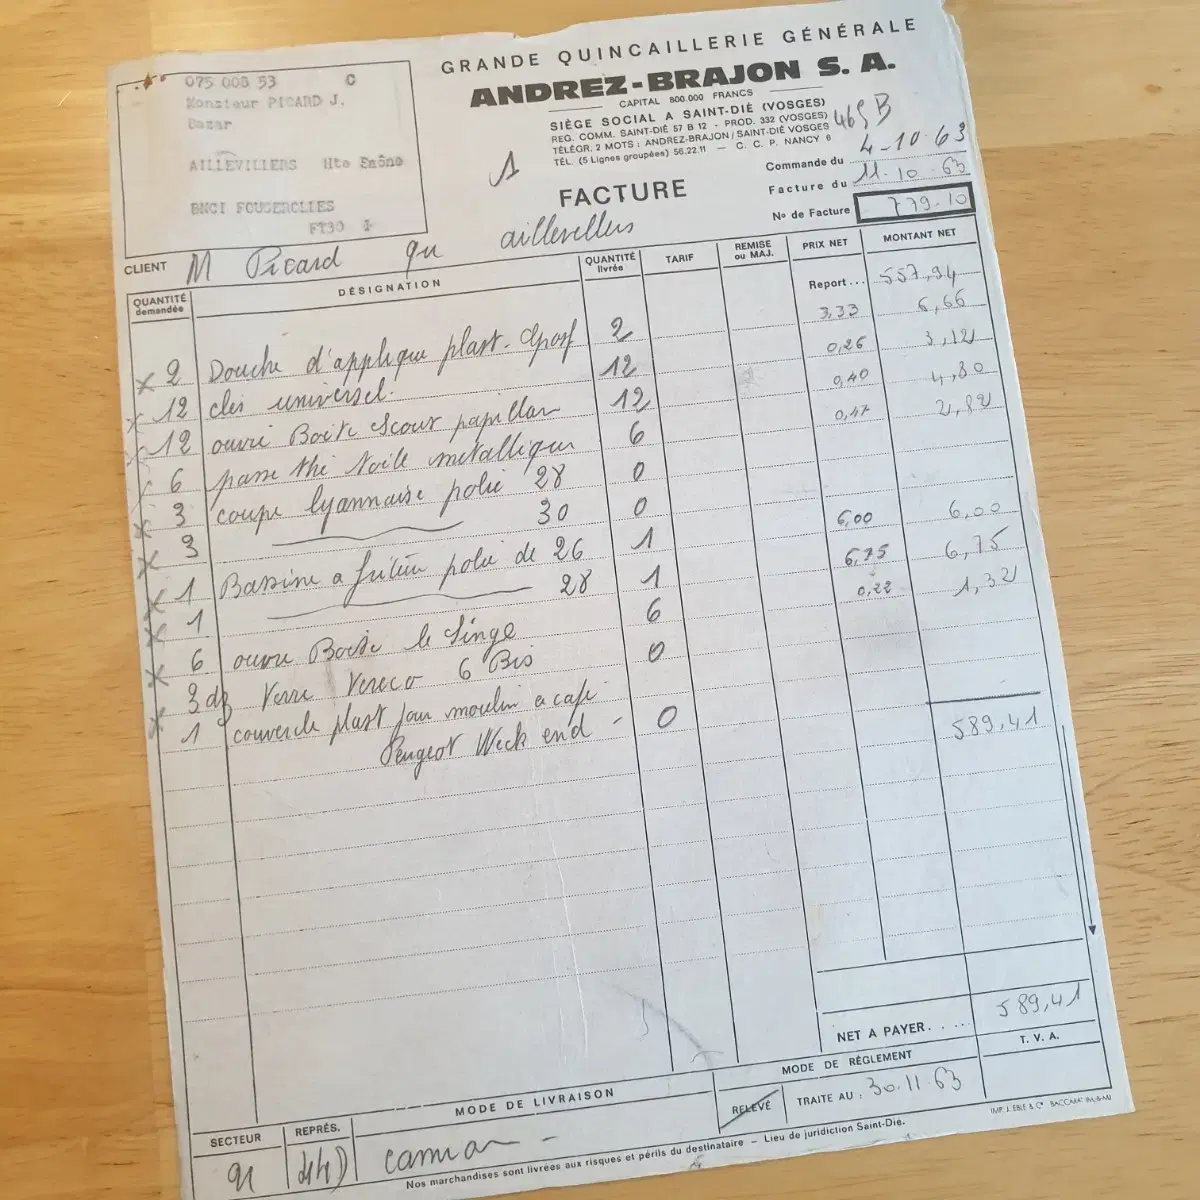 GRANDE QUINCAILLERIE GÉNÉRALE
ANDREZ-BRAJON S. A.
CAPITAL 800.000 FRANCS
SIÈGE SOCIAL A SAINT-DIÉ (VOSGES)
REG. COMM. SAINT-DIÉ 57 B 12 - PROD. 332 (VOSGES)
TÉLÉGR. 2 MOTS : ANDREZ-BRAJON / SAINT-DIÉ VOSGES
TÉL. (5 Lignes groupées) 56.22.11 — C. C. P. NANCY 6
465 B
075 008 53 C
Monsieur PICARD J.
Bazar
AILLEVILLERS Hte Saône
BNCI FOUGEROLLES
F130
1
FACTURE
Commande du 4-10-63
Facture du 11-10-63
Nº de Facture 779.10
CLIENT M Picard qu aillevillers
QUANTITÉ demandée DÉSIGNATION QUANTITÉ livrée TARIF REMISE ou MAJ. PRIX NET MONTANT NET
Report... 557,94
2 Douche d'applique plast. 2 3,33 6,66
12 clés universel. 12 0,26 3,12
12 ouvre Boite Scout papillon 12 0,40 4,80
6 passe thé toile métallique 6 0,47 2,82
3 coupe lyonnaise polie 28 0
3 30 0
1 Bassine a friture polie de 26 1 6,00 6,00
1 28 1 6,75 6,75
6 ouvre Boite le Singe 6 0,22 1,32
3 dz Verre Vereco 6 Bis 0
1 couvercle plast pour moulin a café
Peugeot Week end - 0
589,41
NET A PAYER..... 589,41
MODE DE RÈGLEMENT T. V. A.
RELEVÉ TRAITE AU : 30.11.63
SECTEUR REPRÉS. MODE DE LIVRAISON
91 camion -
IMP. J. EBLE & Cº BACCARAT
Nos marchandises sont livrées aux risques et périls du destinataire - Lieu de juridiction Saint-Dié.